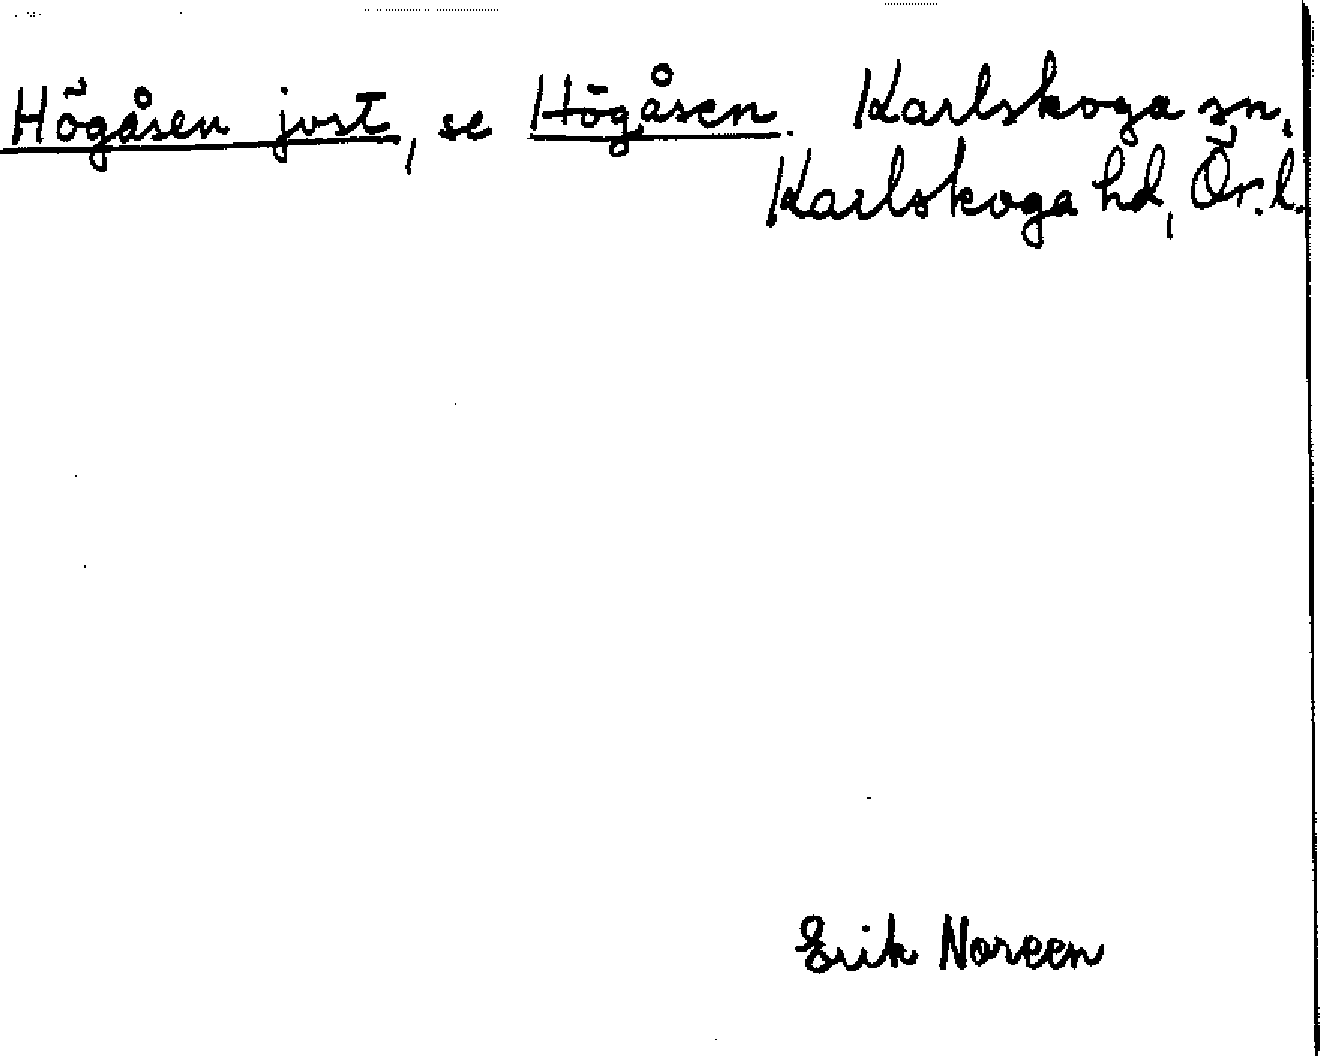 Högåsen jvst, se Högåsen. Karlskoga sn,
Karlskoga hd, Ör. l.
Erik Noreen